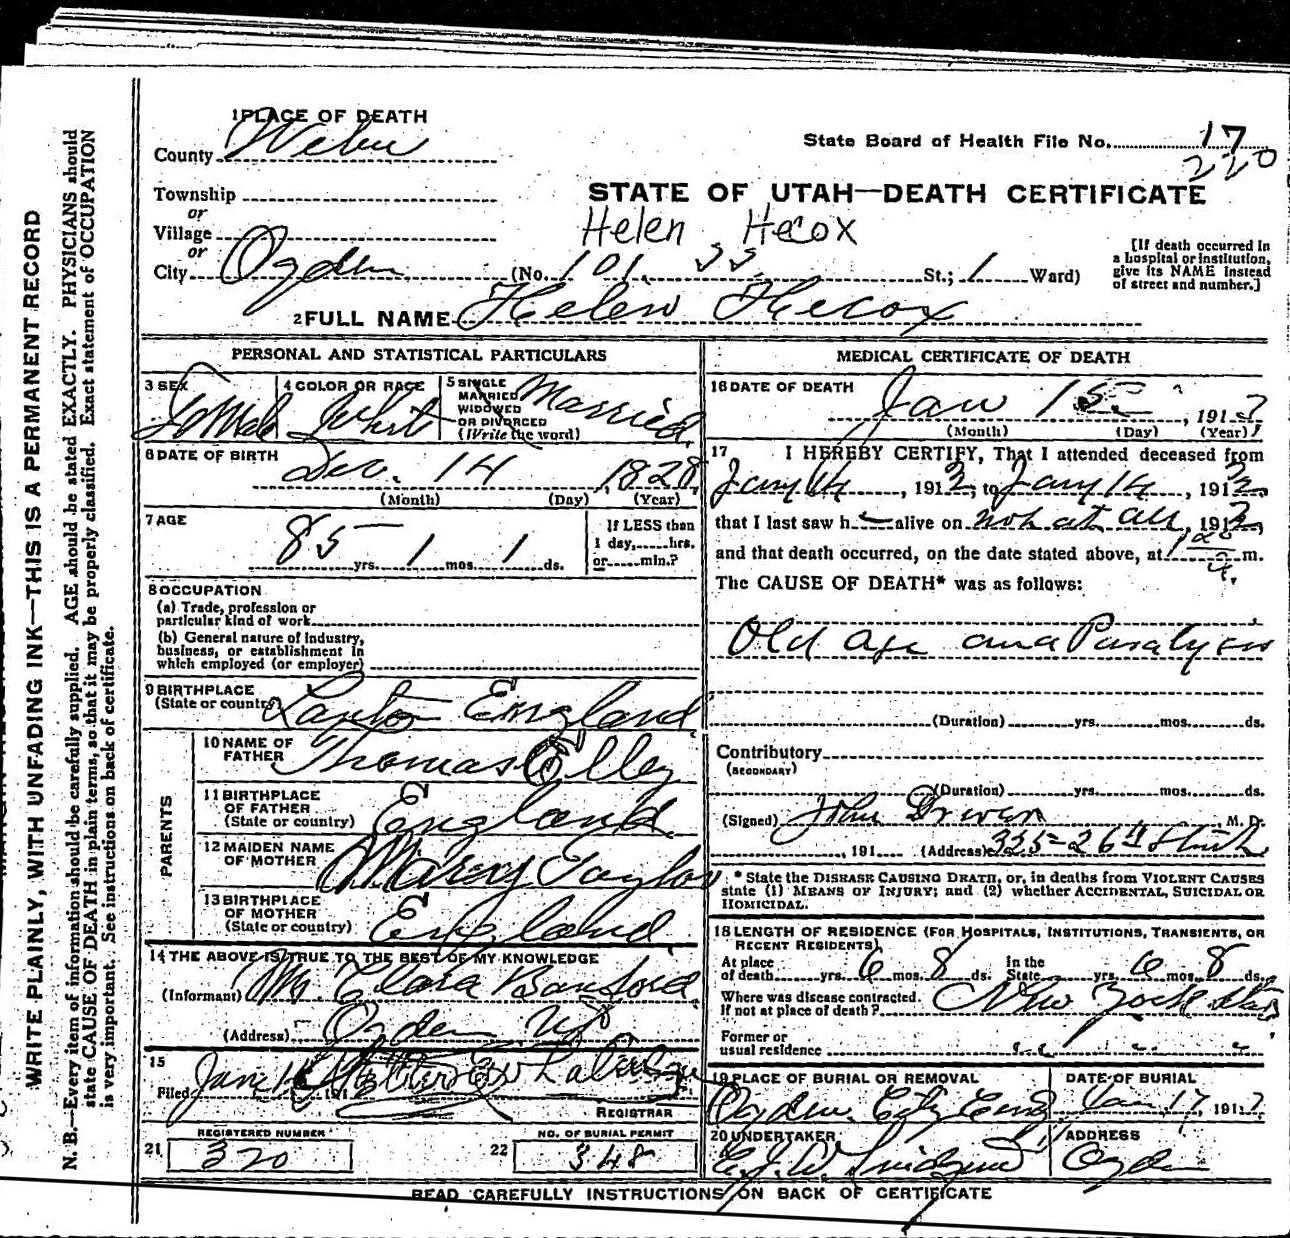 WRITE PLAINLY, WITH UNFADING INK—THIS IS A PERMANENT RECORD
N. B.—Every item of information should be carefully supplied. AGE should be stated EXACTLY. PHYSICIANS should
state CAUSE OF DEATH in plain terms, so that it may be properly classified. Exact statement of OCCUPATION
is very important. See instructions on back of certificate.
1 PLACE OF DEATH
County Weber
State Board of Health File No. 17
220
Township
or
Village
or
City Ogden (No. 101. St.; 1 Ward)
STATE OF UTAH—DEATH CERTIFICATE
Helen Hecox
[If death occurred in
a hospital or institution,
give its NAME instead
of street and number.]
2 FULL NAME Helen Hecox
PERSONAL AND STATISTICAL PARTICULARS
3 SEX Female
4 COLOR OR RACE White
5 SINGLE
MARRIED
WIDOWED
OR DIVORCED
(Write the word)
Married
6 DATE OF BIRTH
Dec. 14, 1828
(Month) (Day) (Year)
7 AGE
85 yrs. 1 mos. 1 ds.
If LESS than
1 day,.....hrs.
or.....min.?
8 OCCUPATION
(a) Trade, profession or
particular kind of work
(b) General nature of industry,
business, or establishment in
which employed (or employer)
9 BIRTHPLACE
(State or country) England
PARENTS
10 NAME OF
FATHER Thomas Elley
11 BIRTHPLACE
OF FATHER
(State or country) England
12 MAIDEN NAME
OF MOTHER Marry Taylor
13 BIRTHPLACE
OF MOTHER
(State or country) England
14 THE ABOVE IS TRUE TO THE BEST OF MY KNOWLEDGE
(Informant) Clara
(Address) Ogden Ut
15
Filed Jan 191
REGISTRAR
REGISTERED NUMBER
21 320
NO. OF BURIAL PERMIT
22 348
MEDICAL CERTIFICATE OF DEATH
16 DATE OF DEATH
Jan 15, 191
(Month) (Day) (Year)
17 I HEREBY CERTIFY, That I attended deceased from
Jany 14, 191 to Jany 14, 191
that I last saw h alive on not at all, 191
and that death occurred, on the date stated above, at m.
The CAUSE OF DEATH* was as follows:
Old age and Paralysis
(Duration) yrs. mos. ds.
Contributory
(SECONDARY)
(Duration) yrs. mos. ds.
(Signed) John Driver M. D.
, 191 (Address) 325-26th Street
* State the DISEASE CAUSING DEATH, or, in deaths from VIOLENT CAUSES
state (1) MEANS OF INJURY; and (2) whether ACCIDENTAL, SUICIDAL OR
HOMICIDAL.
18 LENGTH OF RESIDENCE (FOR HOSPITALS, INSTITUTIONS, TRANSIENTS, OR
RECENT RESIDENTS)
At place
of death yrs. 6 mos. 8 ds.
In the
State yrs. 6 mos. 8 ds.
Where was disease contracted.
If not at place of death? New York State
Former or
usual residence
19 PLACE OF BURIAL OR REMOVAL
Ogden City Cem
DATE OF BURIAL
Jan 17, 191
20 UNDERTAKER
ADDRESS
Ogden
READ CAREFULLY INSTRUCTIONS ON BACK OF CERTIFICATE